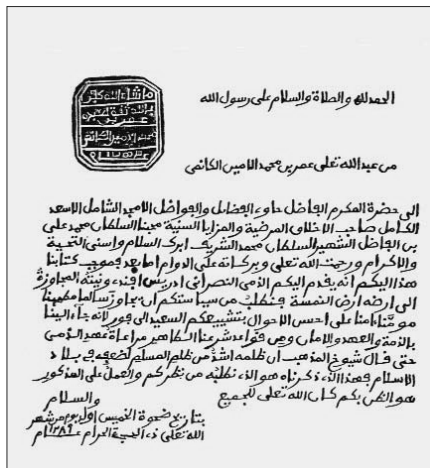 ما شاء الله
الحمد لله والصلاة والسلام على رسول الله
من عبد الله تعلى عمر بن محمد الامين الكانمى
الى حضرة المكرم الفاضل حاوى الفضايل والفواضل الامجد الشامل الاسعد
الكامل صاحب الاخلاق المرضية والمزايا السنية محبنا السلطان محمد على
بن الفاضل الشهير السلطان محمد الشريف ابرك السلام واسنى التحية
والاكرام ورحمت الله تعلى وبركاته على الدوام اما بعد فموجب كتابنا
هذا اليكم انه يقدم اليكم الذمى النصرانى ادريس افندى ونيته المجاوزة
الى ارضه ارض النمسة فنطلب من سياستكم ان يجاوز سالما مطمينا
مومنا ءامنا على احسن الاحوال بتشييعكم السعيد الى فور لانه جاء الينا
بالذمة والعهد والامان ومن قواعد شرعنا الطاهر مراعاة عهد الذمى
حتى قال شيوخ المذهب ان ظلمه اشد من ظلم المسلم لضعفه فى بلاد
الاسلام فهذا الذى ذكرناه هو الذى نطلبه من نظركم والعمل على المذكور
هو الظن بكم كان الله تعلى للجميع والسلام
بتاريخ ضحوة الخميس اول يوم من شهر
الله تعلى ذى الحجة الحرام عام ١٢٨٩